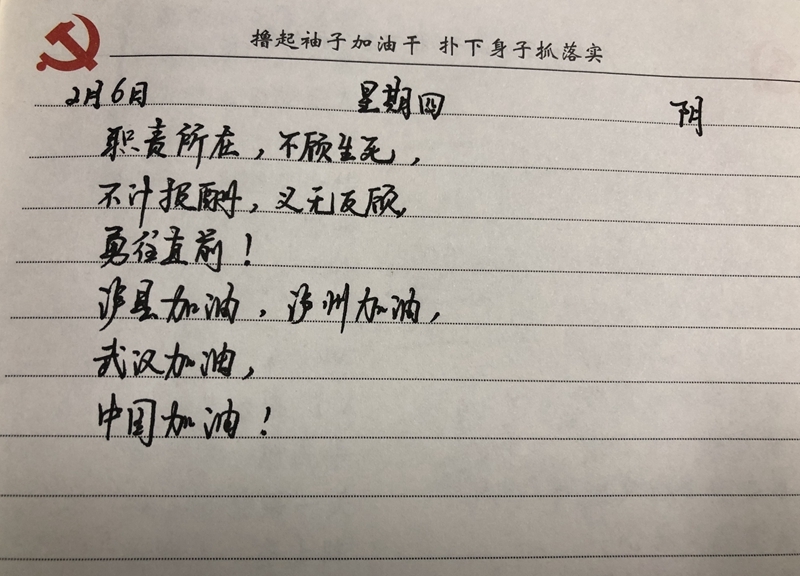 撸起袖子加油干 扑下身子抓落实
2月6日 星期四 阴
职责所在，不顾生死，
不计报酬，义无反顾，
勇往直前！
泸县加油，泸州加油，
武汉加油，
中国加油！